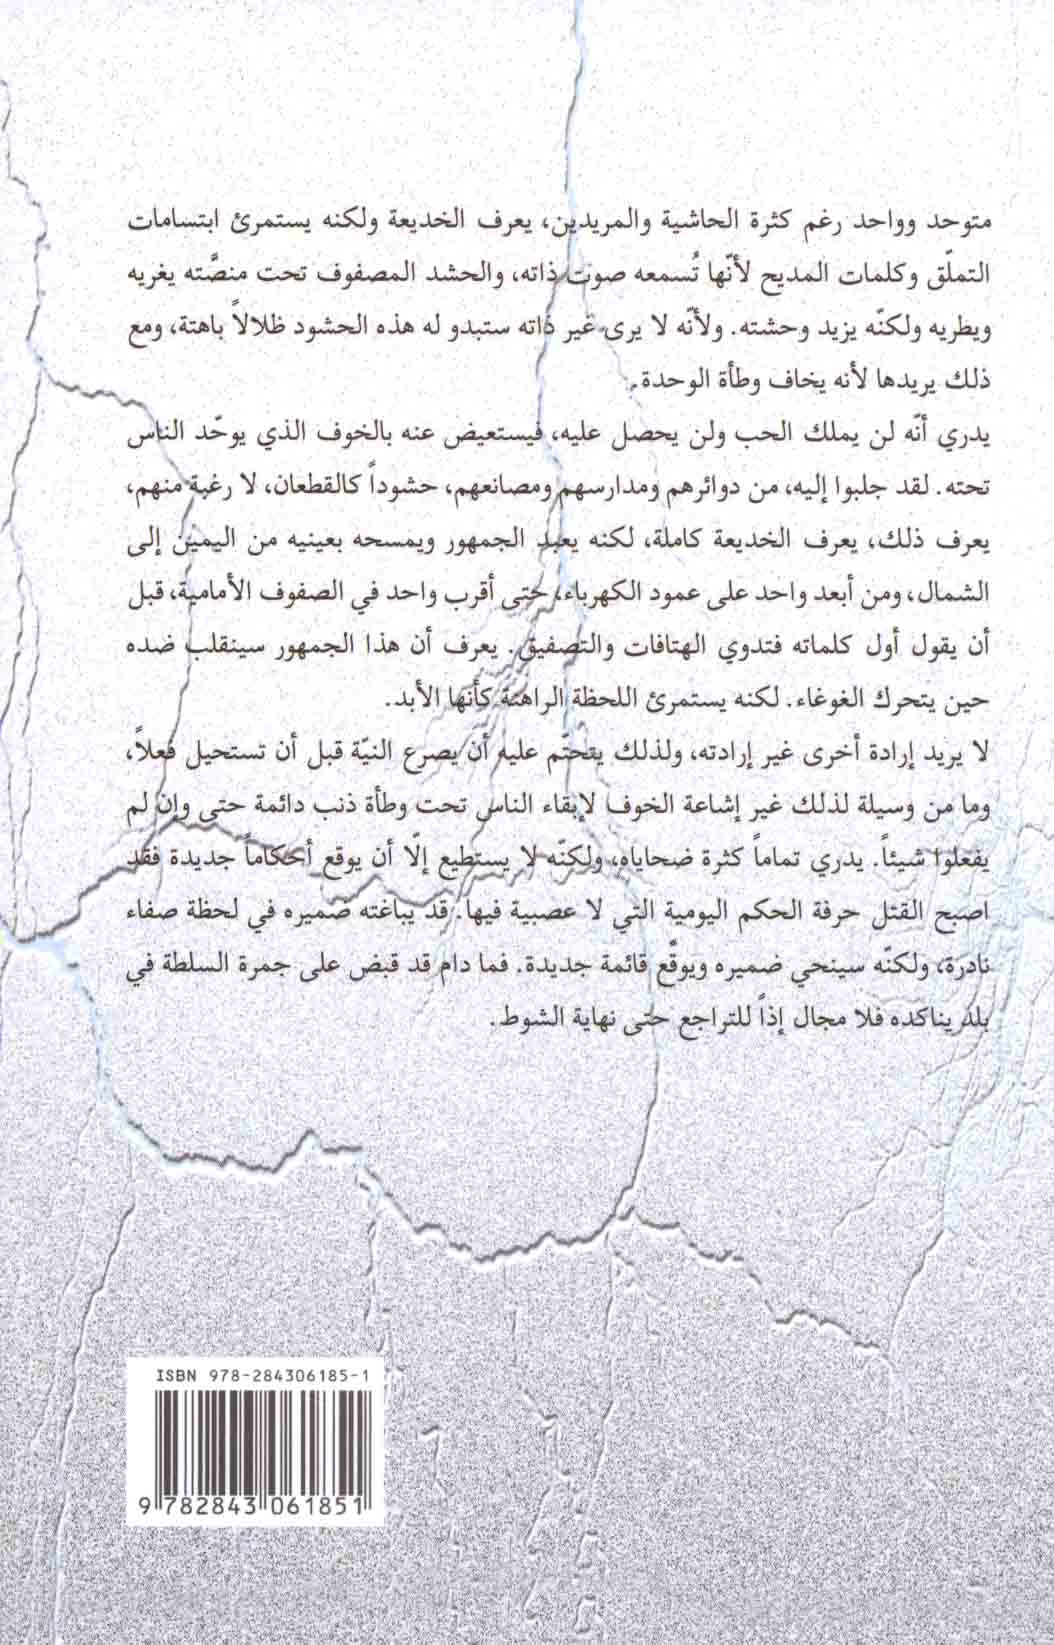 متوحد وواحد رغم كثرة الحاشية والمريدين، يعرف الخديعة ولكنه يستمرئ ابتسامات
التملّق وكلمات المديح لأنّها تُسمعه صوت ذاته، والحشد المصفوف تحت منصَّته يغريه
ويطريه ولكنّه يزيد وحشته. ولأنّه لا يرى غير ذاته ستبدو له هذه الحشود ظلالاً باهتة، ومع
ذلك يريدها لأنه يخاف وطأة الوحدة.
يدري أنّه لن يملك الحب ولن يحصل عليه، فيستعيض عنه بالخوف الذي يوحّد الناس
تحته. لقد جلبوا إليه، من دوائرهم ومدارسهم ومصانعهم، حشوداً كالقطعان، لا رغبة منهم،
يعرف ذلك، يعرف الخديعة كاملة، لكنه يعبد الجمهور ويمسحه بعينيه من اليمين إلى
الشمال، ومن أبعد واحد على عمود الكهرباء، حتى أقرب واحد في الصفوف الأمامية، قبل
أن يقول أول كلماته فتدوي الهتافات والتصفيق. يعرف أن هذا الجمهور سينقلب ضده
حين يتحرك الغوغاء. لكنه يستمرئ اللحظة الراهنة كأنها الأبد.
لا يريد إرادة أخرى غير إرادته، ولذلك يتحتّم عليه أن يصرع النيّة قبل أن تستحيل فعلاً،
وما من وسيلة لذلك غير إشاعة الخوف لإبقاء الناس تحت وطأة ذنب دائمة حتى وإن لم
يفعلوا شيئاً. يدري تماماً كثرة ضحاياه، ولكنّه لا يستطيع إلّا أن يوقع أحكاماً جديدة فقد
اصبح القتل حرفة الحكم اليومية التي لا عصبية فيها. قد يباغته ضميره في لحظة صفاء
نادرة، ولكنّه سينحي ضميره ويوقّع قائمة جديدة. فما دام قد قبض على جمرة السلطة في
بلد يناكده فلا مجال إذاً للتراجع حتى نهاية الشوط.
ISBN 978-284306185-1
9 782843 061851